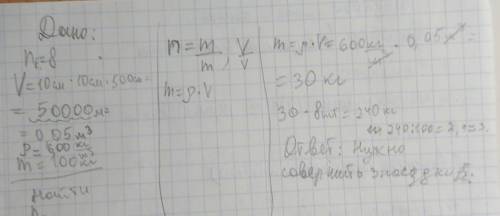 Дано:
n₁=8
V=10см·10см·500см=
= 50000м³
= 0,05м³
ρ=600 кг/м³
m=100кг
Найти
n = m/m, V/V
m=ρ·V
m=ρ·V=600кг/м³·0,05м³=
=30 кг
30·8шт=240кг
240:100=2,4≈3.
Ответ: Нужно
совершить 3 поездки